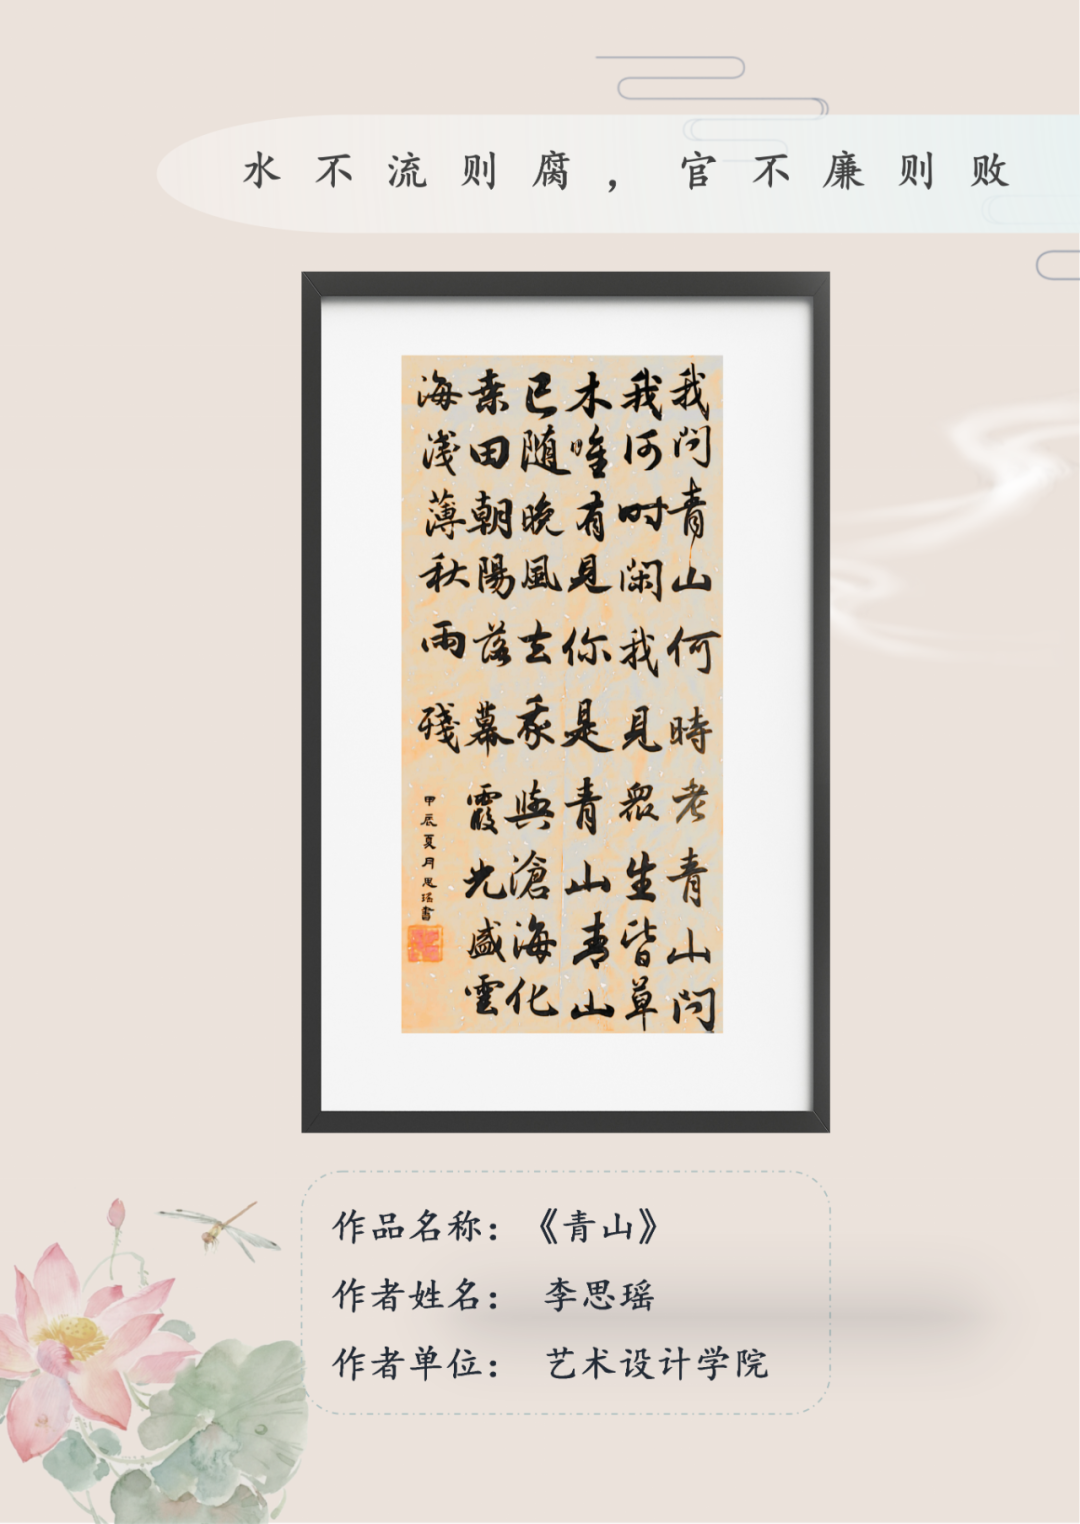 水不流则腐，官不廉则败
我问青山何時老青山问
我何时闲我見眾生皆草
木唯有見你是青山青山
已随晚風去我與滄海化
桑田朝陽落幕霞光盛雲
海淺薄秋雨殘
甲辰夏月思瑶書
作品名称：《青山》
作者姓名： 李思瑶
作者单位： 艺术设计学院